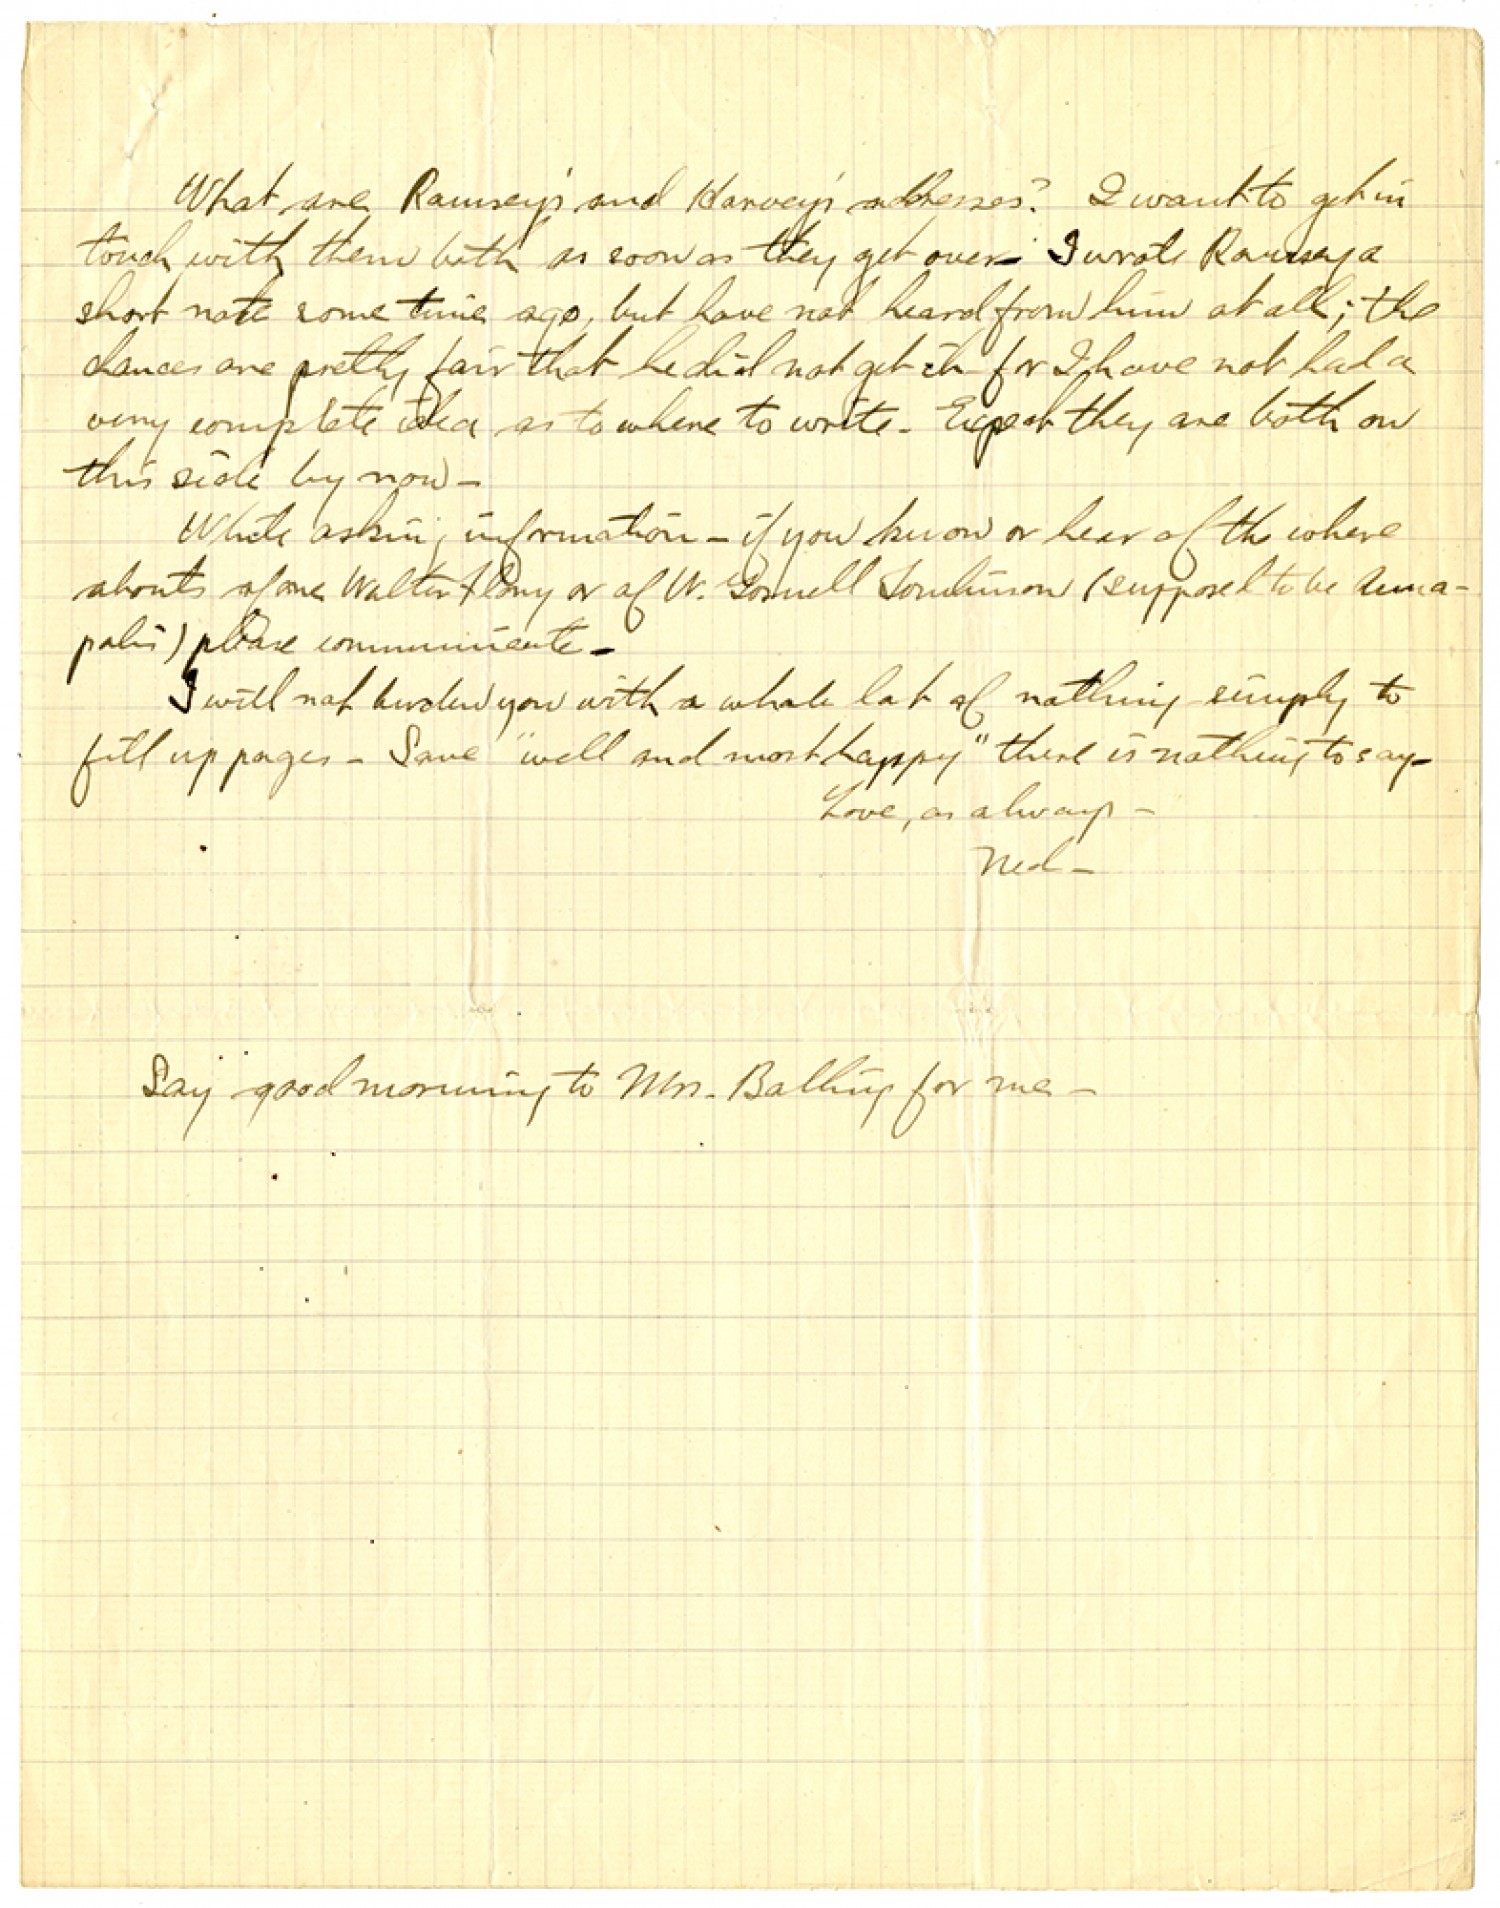 What are Ramsey's and Harvey's addresses? I want to get in
touch with them both as soon as they get over - I wrote Ramsey a
short note some time ago, but have not heard from him at all; the
chances are pretty fair that he did not get it for I have not had a
very complete idea as to where to write - Expect they are both on
this side by now -
While asking information - if you know or hear of the where
abouts of one Walter or of W. Gosnell Tomlinson (supposed to be Anna-
polis) please communicate -
I will not burden you with a whole lot of nothing simply to
fill up pages - Save "well and most happy" there is nothing to say -
Love, as always -
Ned -
Say good morning to Mrs. for me -